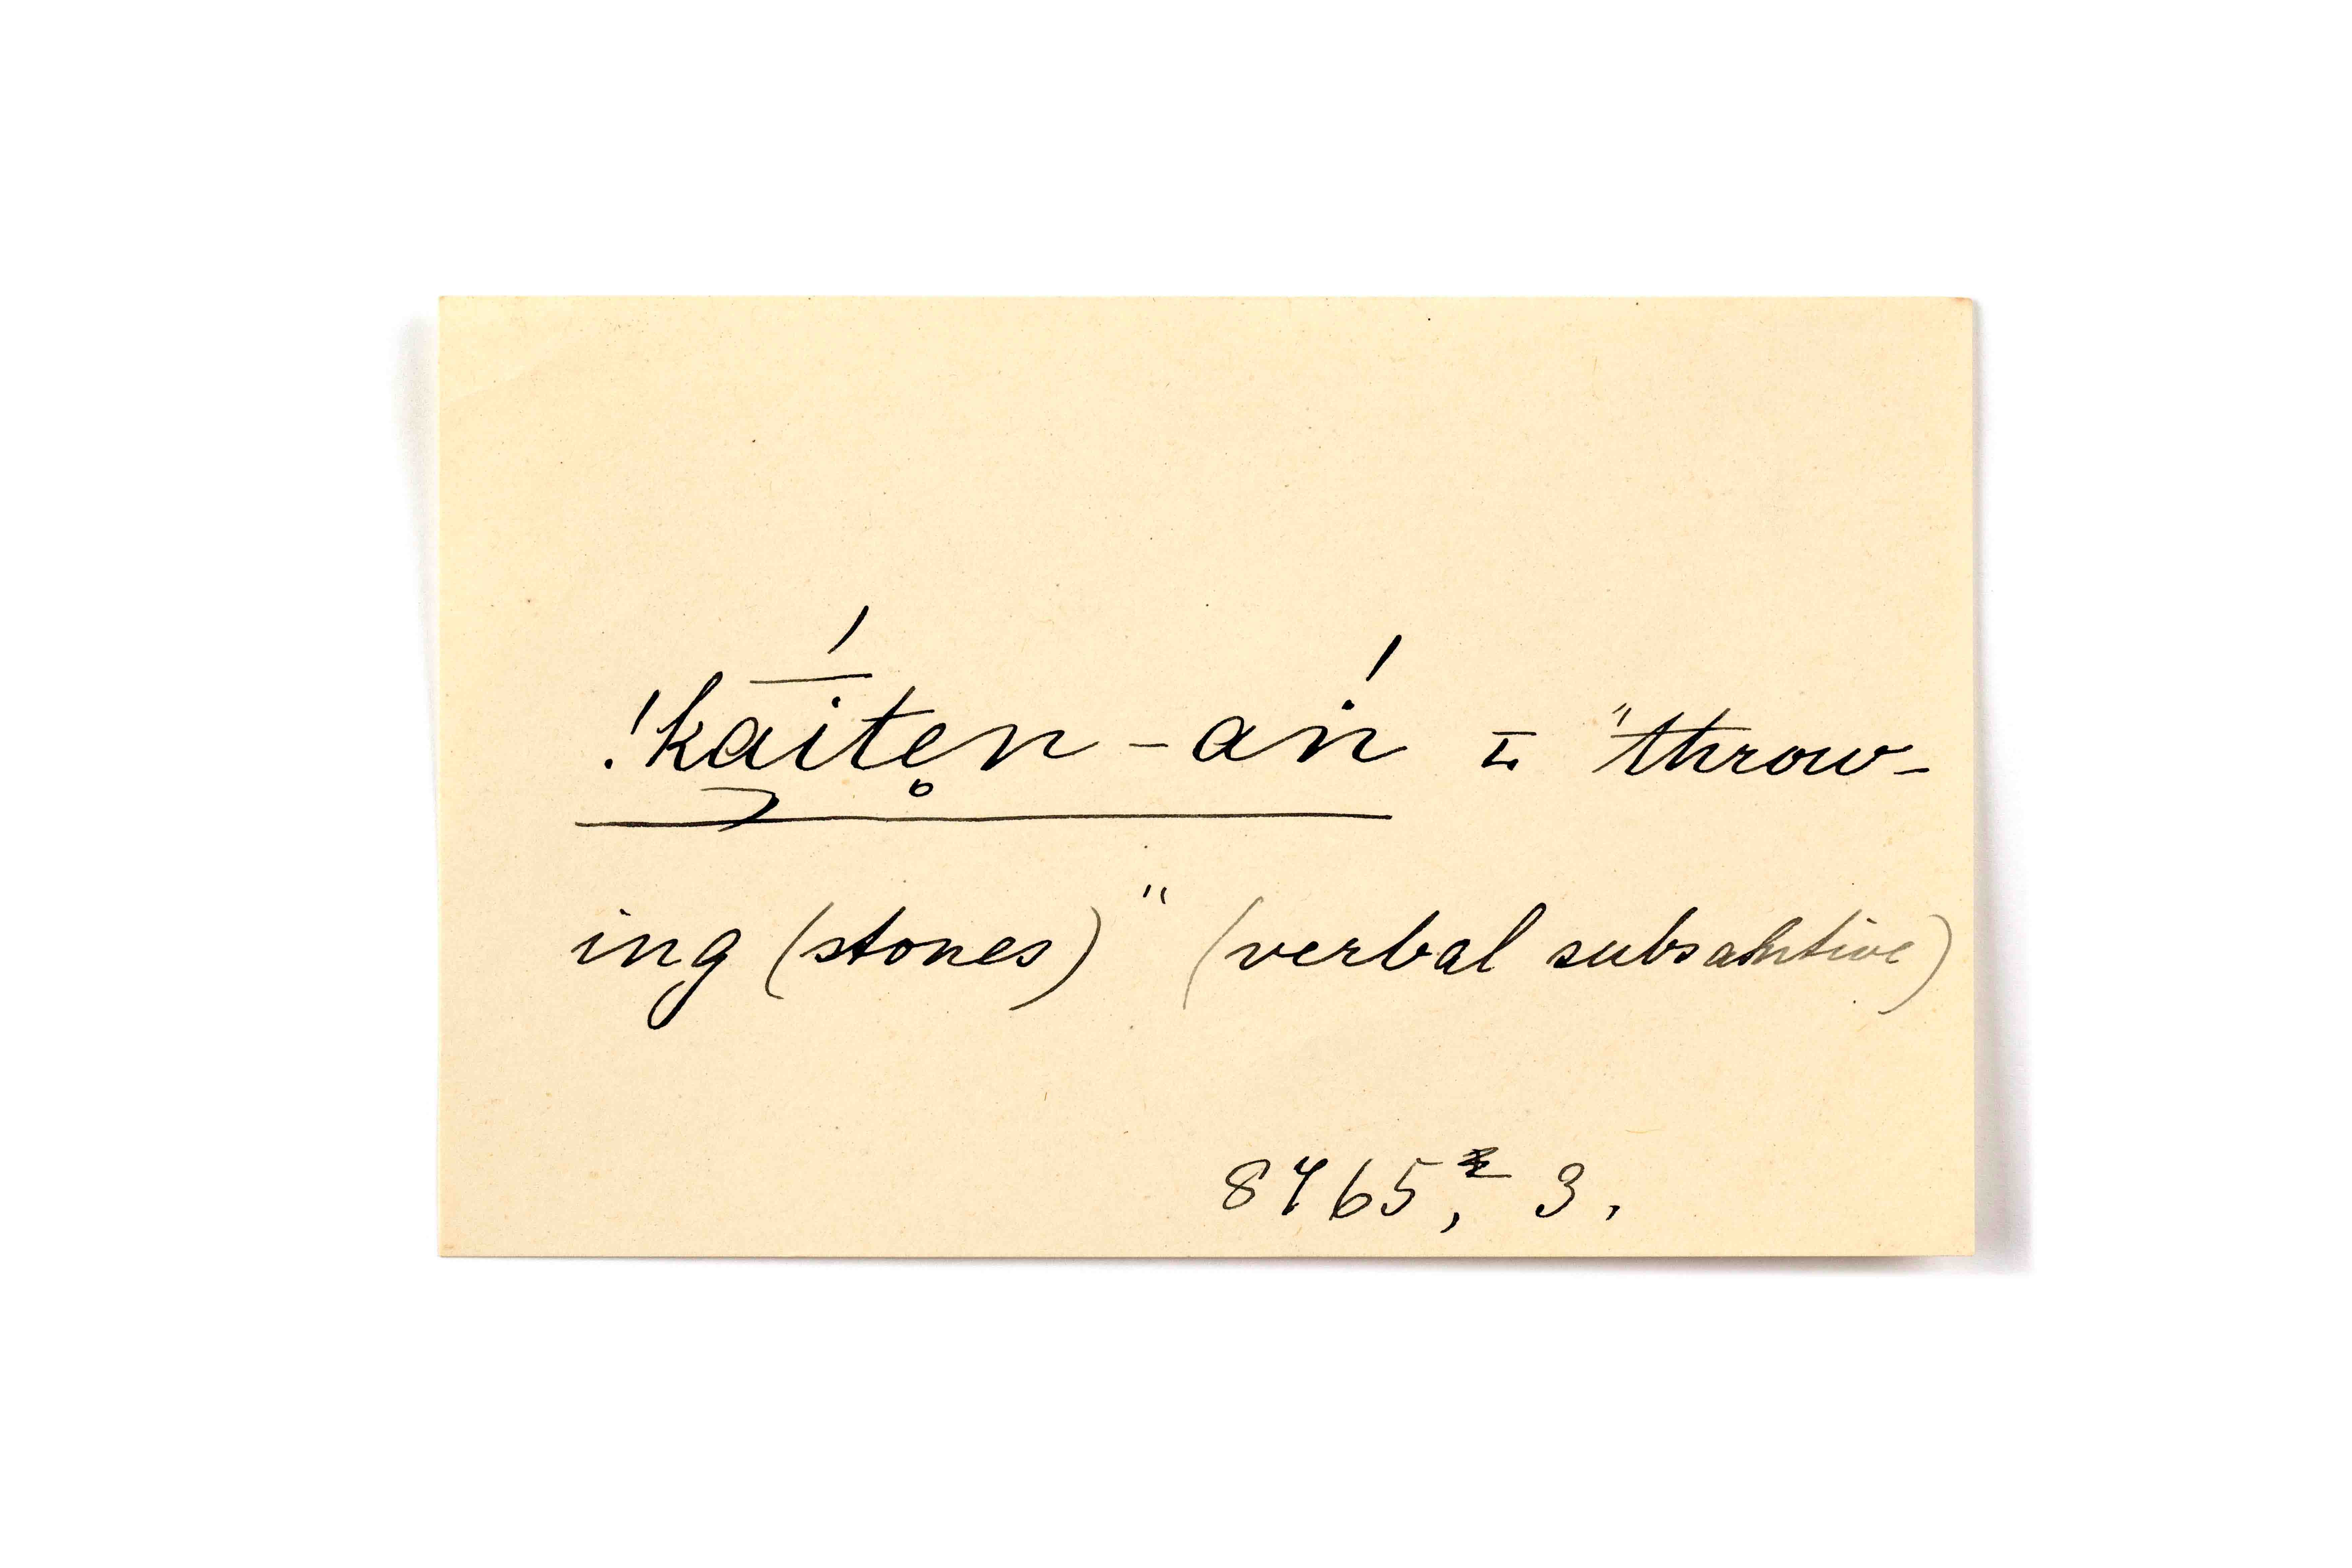 !kāíte̥n-aṅ́ = "throw-
ing (stones)" (verbal subsahtive)
8765, 3.